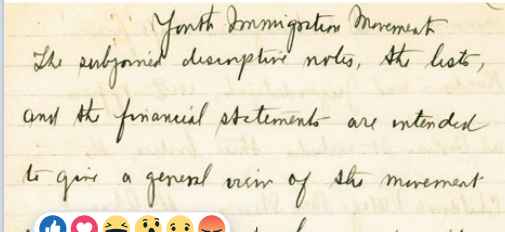 Youth Immigration Movement
The subjoined descriptive notes, the lists,
and the financial statements are intended
to give a general view of the movement